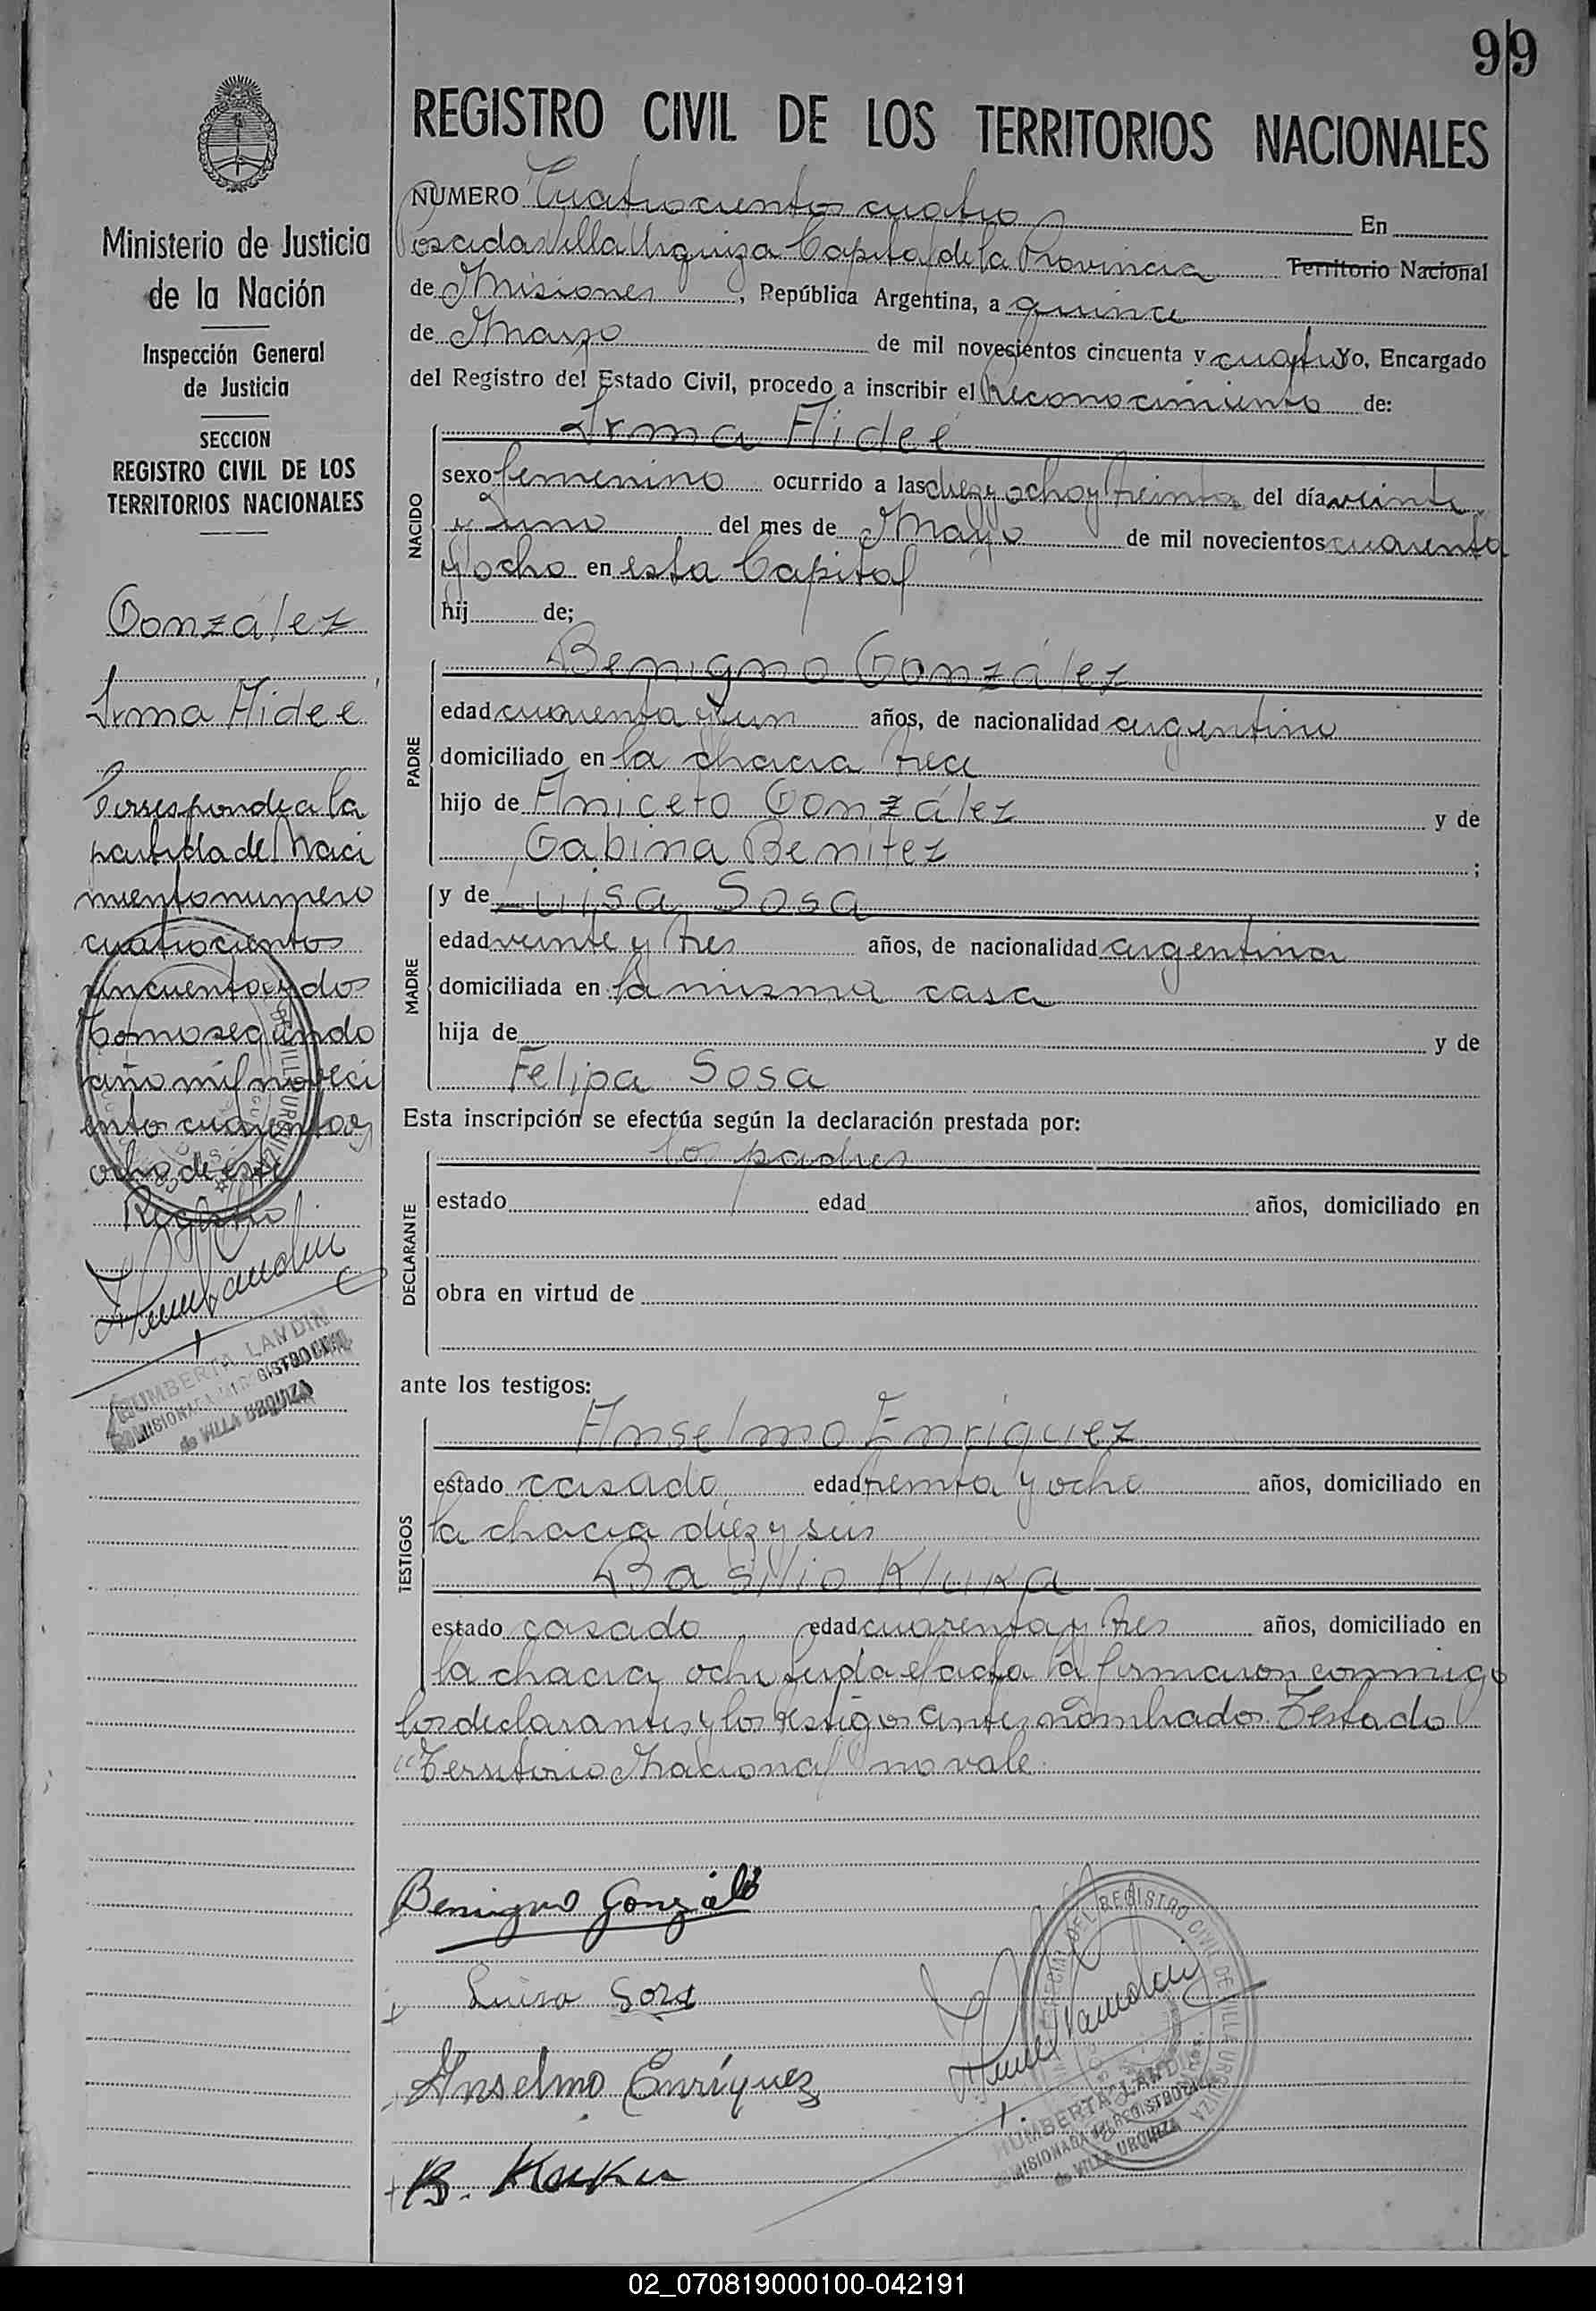 99
REGISTRO CIVIL DE LOS TERRITORIOS NACIONALES
NUMERO Cuatrocientos cuatro En
Posadas Villa Urquiza Capital de la Provincia Territorio Nacional
de Misiones, República Argentina, a quince
de Marzo de mil novecientos cincuenta y cuatro Yo, Encargado
del Registro del Estado Civil, procedo a inscribir el Reconocimiento de:
Irma Aideé
NACIDO
sexo femenino ocurrido a las diez y ocho y treinta del día veinte
y uno del mes de Mayo de mil novecientos cuarenta
y ocho en esta Capital
hij de;
PADRE
Benigno González
edad cuarenta y un años, de nacionalidad argentino
domiciliado en la chacra trece
hijo de Aniceto González y de
Gabina Benitez ;
MADRE
y de Luisa Sosa
edad veinte y tres años, de nacionalidad argentina
domiciliada en la misma casa
hija de y de
Felipa Sosa
Esta inscripción se efectúa según la declaración prestada por:
DECLARANTE
lo padres
estado edad años, domiciliado en
obra en virtud de
ante los testigos:
TESTIGOS
Anselmo Enriquez
estado casado edad treinta y ocho años, domiciliado en
la chacra diez y seis
Basilio Kluka
estado casado edad cuarenta y tres años, domiciliado en
la chacra ocho Leida el acta la firmaron conmigo
los declarantes y los testigos antes nombrado. Testado
"Territorio Nacional" no vale.
Benigno González
Luisa Sosa
Anselmo Enríquez
B. Kluka
REGISTRO CIVIL DE VILLA URQUIZA
HUMBERTA LANDIN
COMISIONADA DEL REGISTRO CIVIL
de VILLA URQUIZA
Ministerio de Justicia
de la Nación
Inspección General
de Justicia
SECCION
REGISTRO CIVIL DE LOS
TERRITORIOS NACIONALES
González
Irma Aideé
Corresponde a la
partida de Naci
miento numero
cuatrocientos
cincuenta y dos
Tomo segundo
año mil noveci
ento cuarenta y
ocho de este
Registro
HUMBERTA LANDIN
COMISIONADA DEL REGISTRO CIVIL
de VILLA URQUIZA
02_070819000100-042191